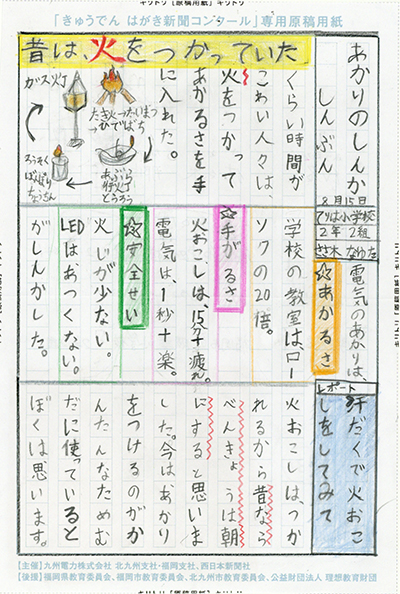 キリトリ【原稿用紙】キリトリ
「きゅうでん はがき新聞コンクール」専用原稿用紙
あかりのしんか
しんぶん
8月15日
てりは小学校
2年 2組
ささ木 なゆた
昔は火をつかっていた
くらい時間が
こわい人々は、
火をつかって
あかるさを手
に入れた。
たき火→たいまつ
→ひでばち
あぶら
行灯
とうろう
ろうそく
ぼんぼり
ちょうちん
ガス灯
電気のあかりは、
☆あかるさ
学校の教室は、ロー
ソクの20倍。
☆手がるさ
火おこしは、15分+疲れ。
電気は、1秒+楽。
☆安全せい
火じが少ない。
LEDはあつくない。
がしんかした。
レポート
汗だくで火おこ
しをしてみて
火おこしはつか
れるから昔なら
べんきょうは朝
にすると思いま
した。今はあかり
をつけるのがか
んたんなためむ
だに使っていると
ぼくは思います。
【主催】九州電力株式会社 北九州支社・福岡支社、西日本新聞社
【後援】福岡県教育委員会、福岡市教育委員会、北九州市教育委員会、公益財団法人 理想教育財団
キリトリ【原稿用紙】キリトリ